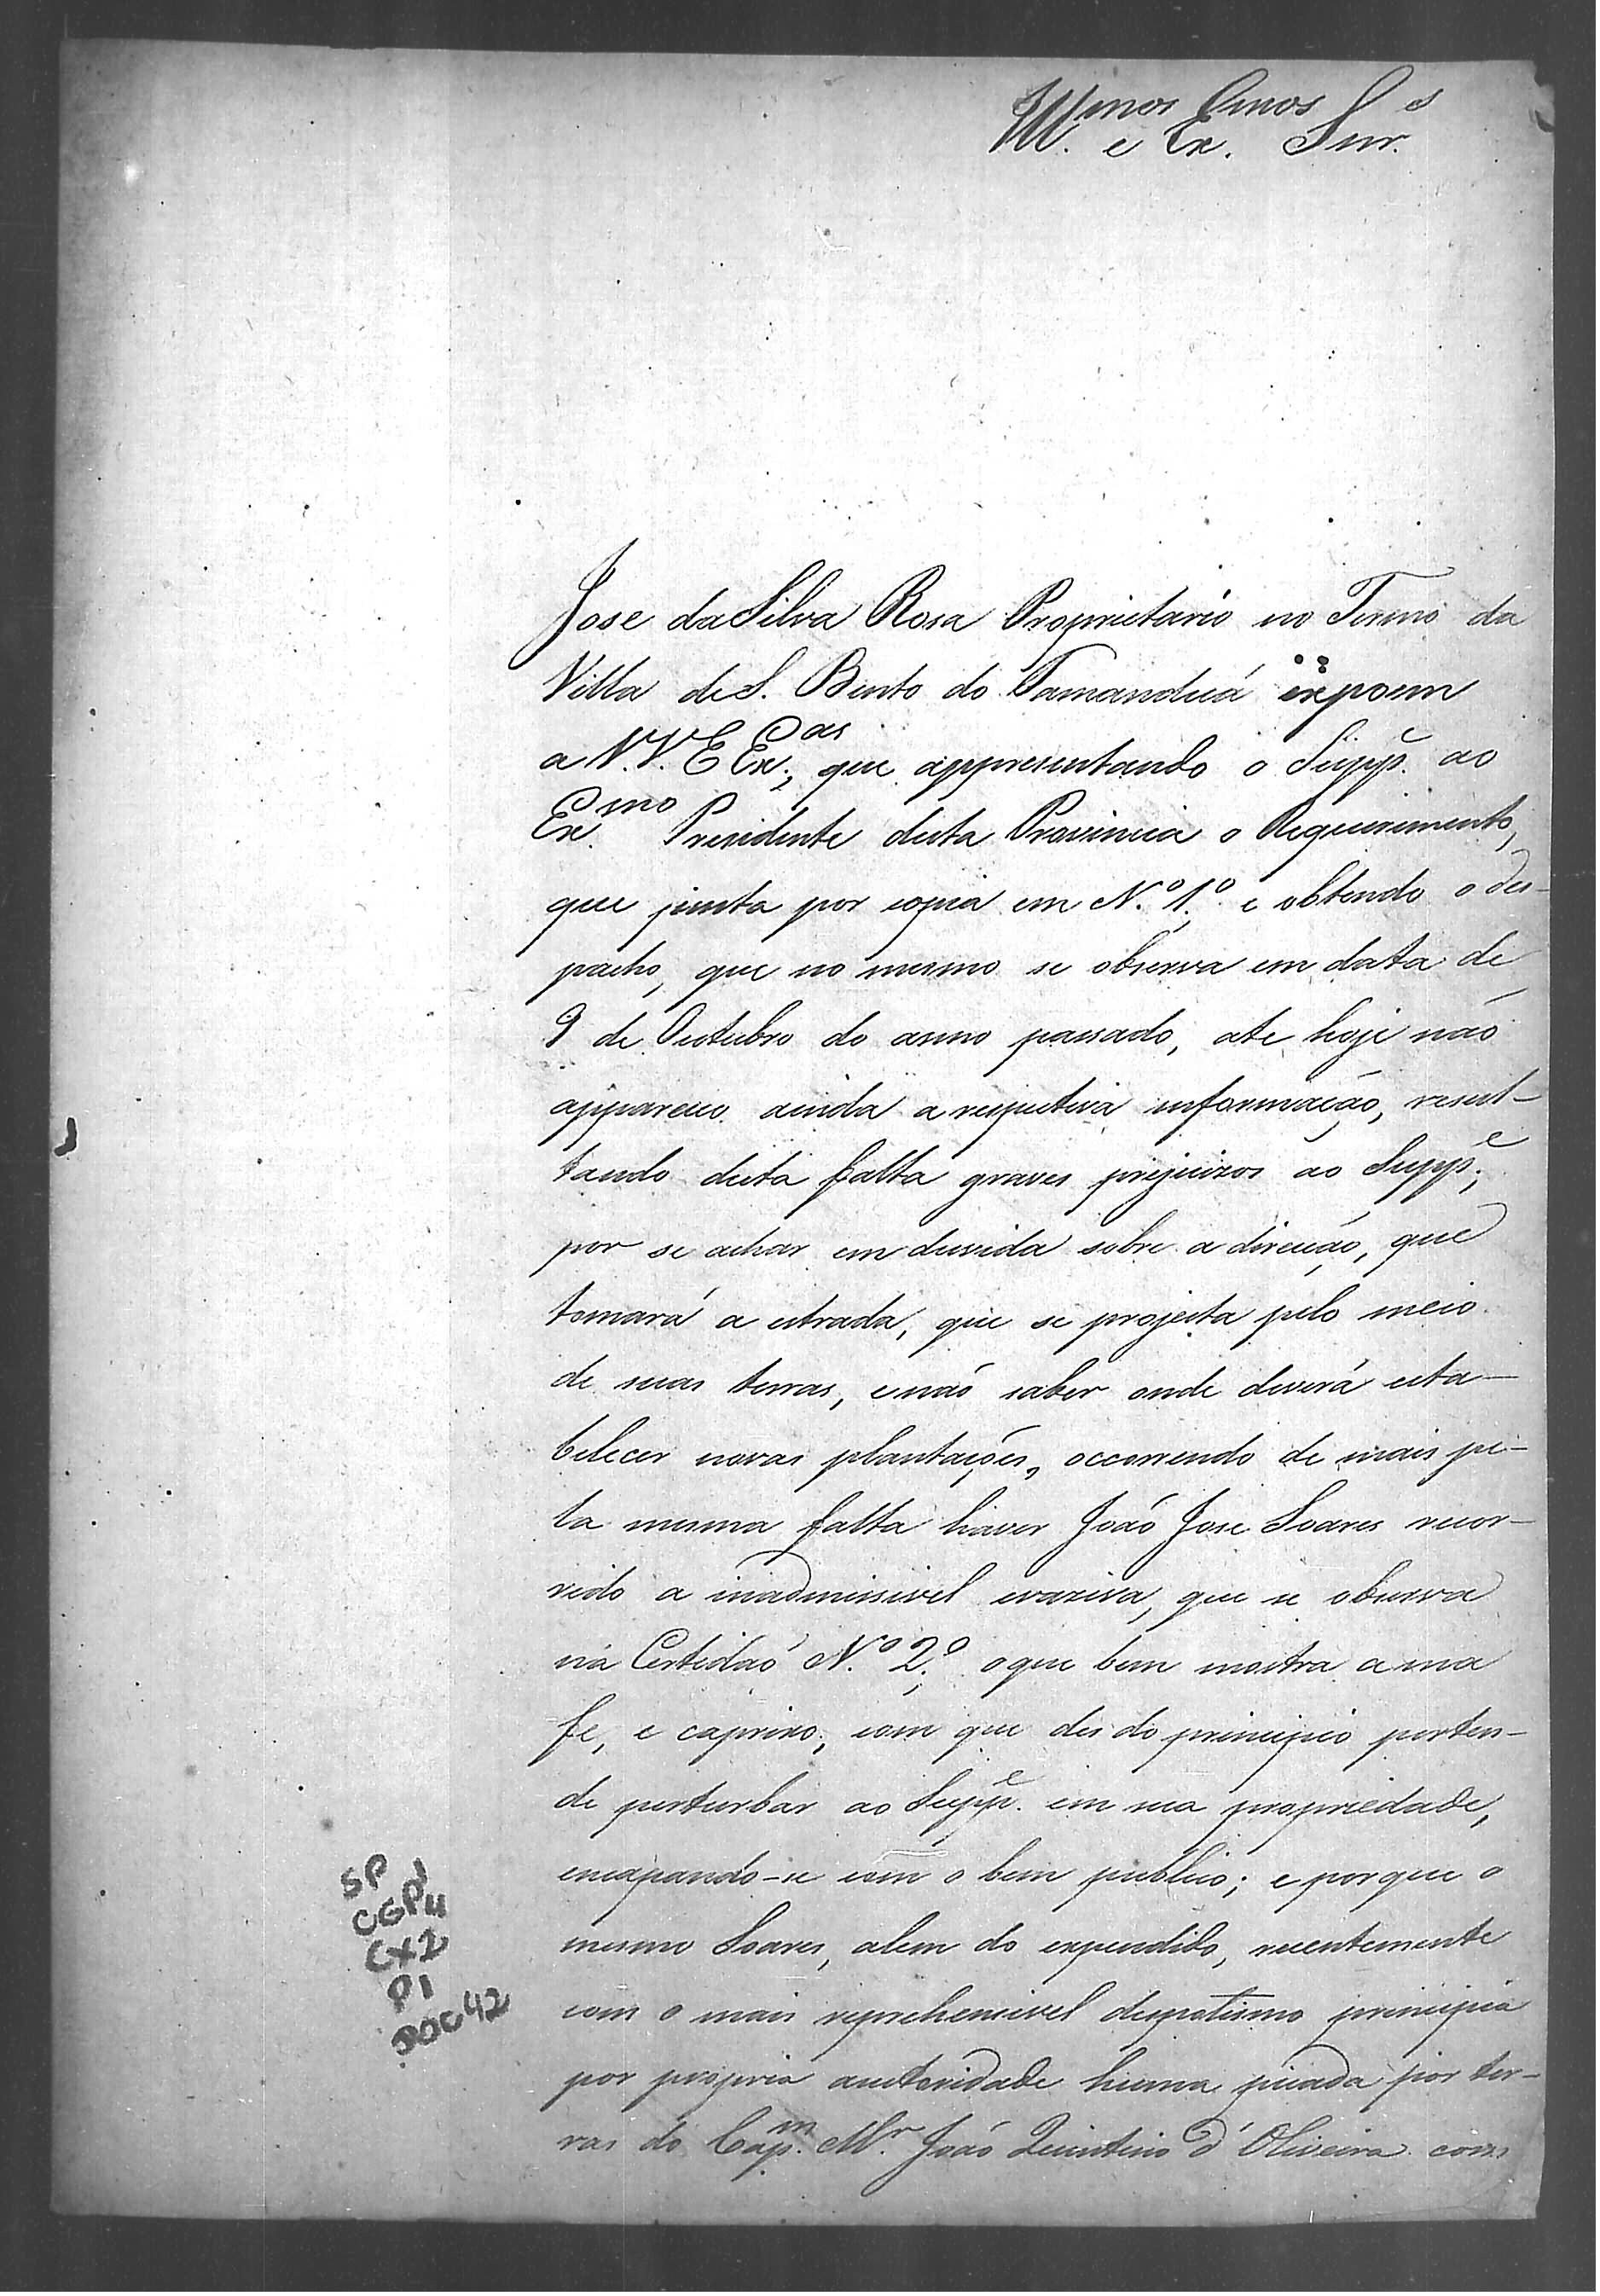 Ill.mos e Ex.mos Snr.es
Jose da Silva Rosa Proprietario no Termo da
Villa de S. Bento do Tamanduá expoem
a V.V. E Ex.as, que appresentando o Supp.e ao
Ex.mo Presidente desta Provincia o Requerimento,
que junta por copia em N.º 1.º, e obtendo o des-
pacho, que no mesmo se observa em data de
9 de Outubro do anno passado, ate hoje naõ
appareceo ainda a respectiva informaçaõ, resul-
tando desta falta graves prejuizos ao Supp.e,
por se achar em duvida sobre a direcçaõ, que
tomará a estrada, que se projecta pelo meio
de suas terras, e naõ saber onde deverá esta-
belecer novas plantações, occorrendo de mais pe-
la mesma falta haver Joaõ Jose Soares recor-
rido a inadmissivel evaziva, que se observa
na Certidaõ N.º 2.º, o que bem mostra a ma
fe, e caprixo, com que des do principio perten-
de perturbar ao Supp.e em sua propriedade,
encapando-se com o bem publico; e porque o
mesmo Soares, alem do expendido, recentemente
com o mais reprehensivel despotismo principia
por propria auctoridade huma picada por ter-
ras do Cap.m M.r Joaõ Quintino d'Oliveira com
SP
CGP4
CX2
P1
D0042